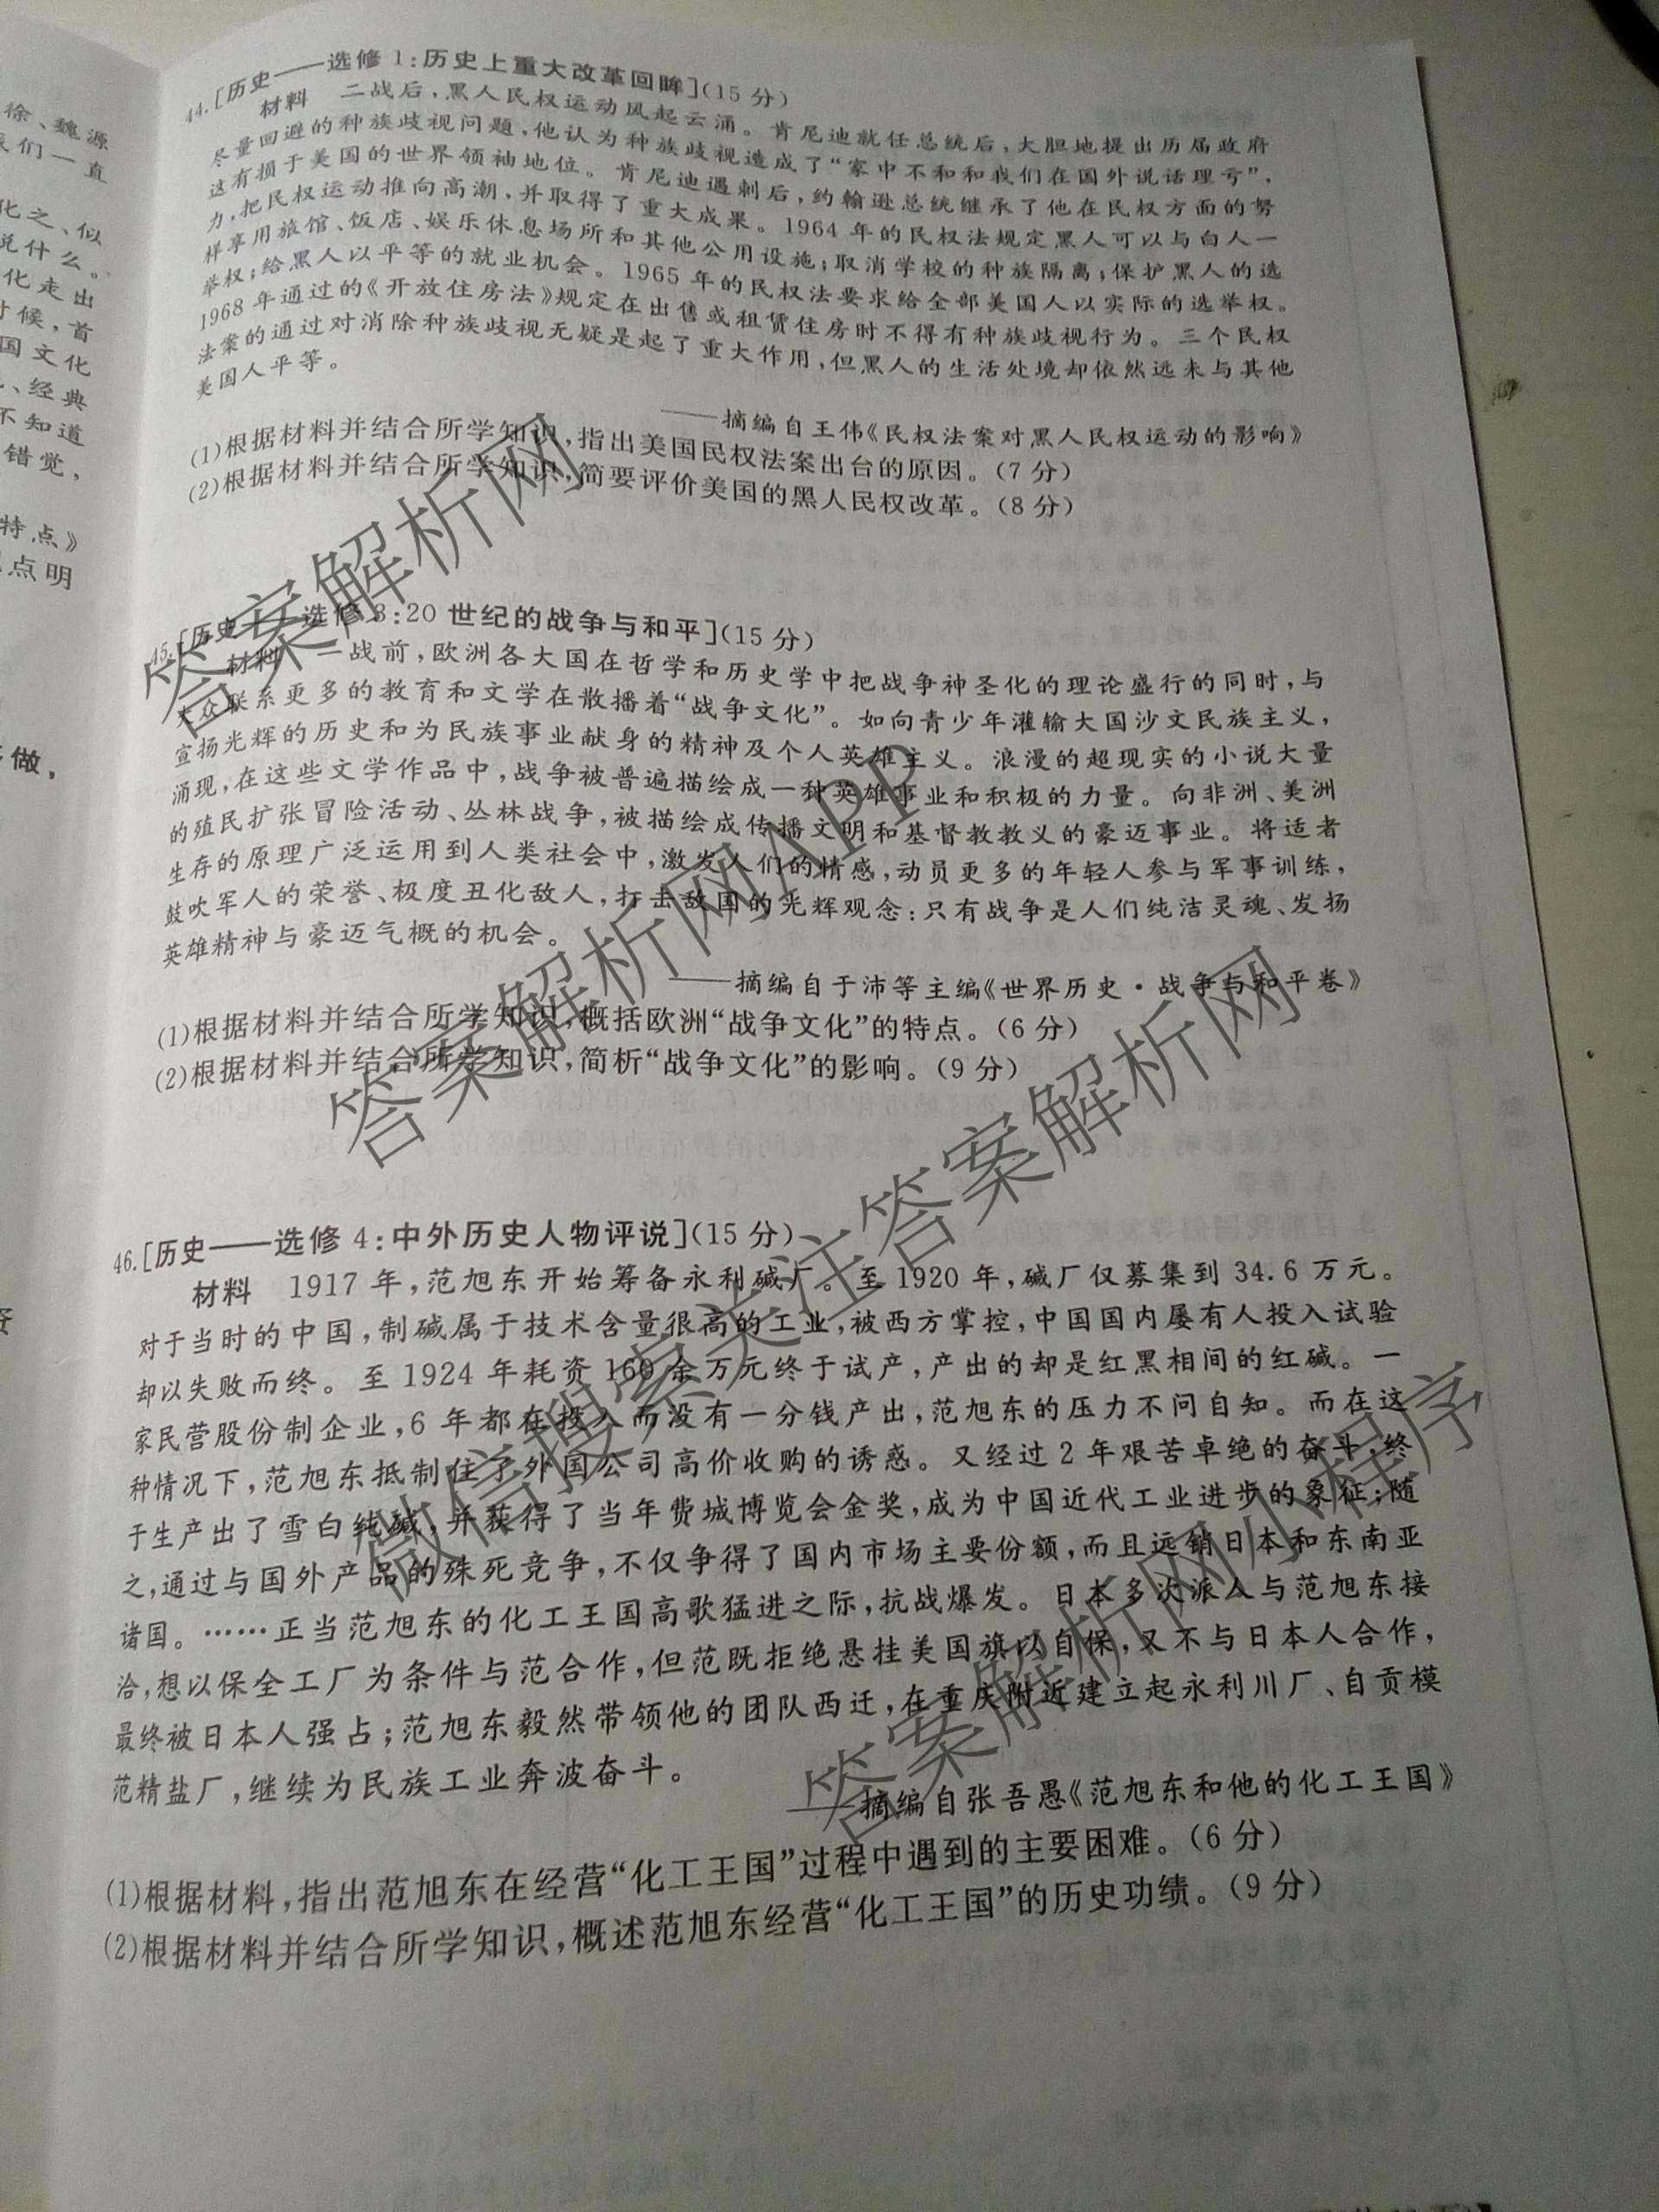 徐、魏源
们一直
化之、似
说什么。
化走出
时候,首
国文化
、经典
不知道
错觉,
特点》
点明
做,
44.[历史——选修1:历史上重大改革回眸](15分)
材料 二战后,黑人民权运动风起云涌。肯尼迪就任总统后,大胆地提出历届政府
尽量回避的种族歧视问题,他认为种族歧视造成了“家中不和和我们在国外说话理亏”,
这有损于美国的世界领袖地位。肯尼迪遇刺后,约翰逊总统继承了他在民权方面的努
力,把民权运动推向高潮,并取得了重大成果。1964年的民权法规定黑人可以与白人一
样享用旅馆、饭店、娱乐休息场所和其他公用设施;取消学校的种族隔离;保护黑人的选
举权;给黑人以平等的就业机会。1965年的民权法要求给全部美国人以实际的选举权。
1968年通过的《开放住房法》规定在出售或租赁住房时不得有种族歧视行为。三个民权
法案的通过对消除种族歧视无疑是起了重大作用,但黑人的生活处境却依然远未与其他
美国人平等。
——摘编自王伟《民权法案对黑人民权运动的影响》
(1)根据材料并结合所学知识,指出美国民权法案出台的原因。(7分)
(2)根据材料并结合所学知识,简要评价美国的黑人民权改革。(8分)
45.[历史——选修3:20世纪的战争与和平](15分)
材料 一战前,欧洲各大国在哲学和历史学中把战争神圣化的理论盛行的同时,与
大众联系更多的教育和文学在散播着“战争文化”。如向青少年灌输大国沙文民族主义,
宣扬光辉的历史和为民族事业献身的精神及个人英雄主义。浪漫的超现实的小说大量
涌现,在这些文学作品中,战争被普遍描绘成一种英雄事业和积极的力量。向非洲、美洲
的殖民扩张冒险活动、丛林战争,被描绘成传播文明和基督教教义的豪迈事业。将适者
生存的原理广泛运用到人类社会中,激发人们的情感,动员更多的年轻人参与军事训练,
鼓吹军人的荣誉、极度丑化敌人,打击敌国的光辉观念:只有战争是人们纯洁灵魂、发扬
英雄精神与豪迈气概的机会。
——摘编自于沛等主编《世界历史·战争与和平卷》
(1)根据材料并结合所学知识,概括欧洲“战争文化”的特点。(6分)
(2)根据材料并结合所学知识,简析“战争文化”的影响。(9分)
46.[历史——选修4:中外历史人物评说](15分)
材料 1917年,范旭东开始筹备永利碱厂。至1920年,碱厂仅募集到34.6万元。
对于当时的中国,制碱属于技术含量很高的工业,被西方掌控,中国国内屡有人投入试验
却以失败而终。至1924年耗资160余万元终于试产,产出的却是红黑相间的红碱。一
家民营股份制企业,6年都在投入而没有一分钱产出,范旭东的压力不问自知。而在这
种情况下,范旭东抵制住了外国公司高价收购的诱惑。又经过2年艰苦卓绝的奋斗,终
于生产出了雪白纯碱,并获得了当年费城博览会金奖,成为中国近代工业进步的象征;随
之,通过与国外产品的殊死竞争,不仅争得了国内市场主要份额,而且远销日本和东南亚
诸国。……正当范旭东的化工王国高歌猛进之际,抗战爆发。日本多次派人与范旭东接
洽,想以保全工厂为条件与范合作,但范既拒绝悬挂美国旗以自保,又不与日本人合作,
最终被日本人强占;范旭东毅然带领他的团队西迁,在重庆附近建立起永利川厂、自贡模
范精盐厂,继续为民族工业奔波奋斗。
——摘编自张吾愚《范旭东和他的化工王国》
(1)根据材料,指出范旭东在经营“化工王国”过程中遇到的主要困难。(6分)
(2)根据材料并结合所学知识,概述范旭东经营“化工王国”的历史功绩。(9分)
答案解析网
答案解析网APP
微信搜索关注答案解析网
答案解析网小程序